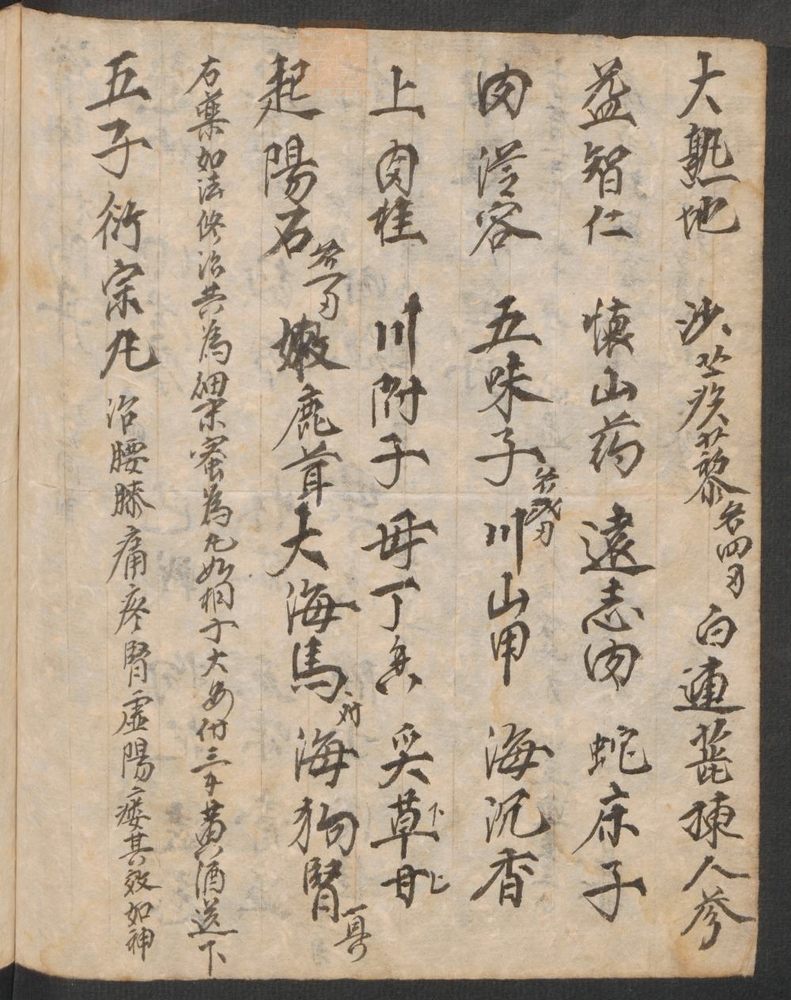 大熟地 沙蒺藜各四刄 白蓮蕋 揀人參
益智仁 懷山药 遠志肉 蛇床子
肉蓯容 五味子各弍刄 川山甲 海沉香
上肉桂 川附子 母丁香 草
起陽石各一刄 嫩鹿茸 大海馬一对 海狗腎一具
右藥如法修治共為細末蜜為丸如桐子大每付三黄酒送下
五子衍宗丸 治腰膝痛疼腎虛陽痿其效如神